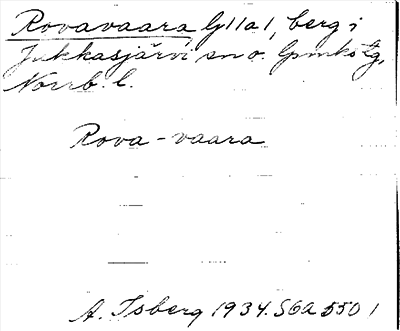 Rovavaara, Lj 11 a 1, berg i
Jukkasjärvi sn o. lpmks tg,
Norrb. l.
Rova-vaara
A. Isberg 1934. SGA 550 1